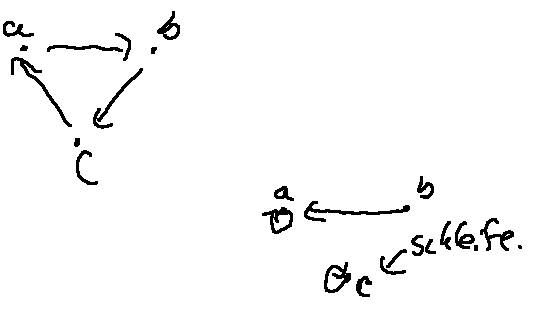 a b
C
a b
schleife.
c